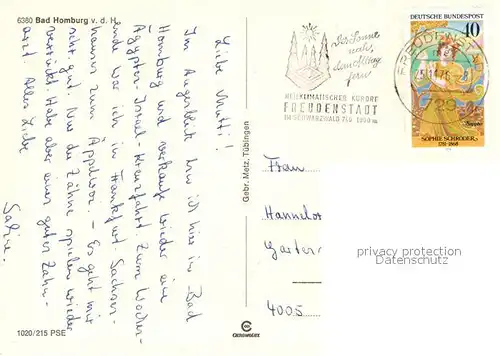 6380 Bad Homburg v. d. H.
Liebe Mutti!
Im Augenblick bin ich hier in Bad
Homburg und verkaufe wieder eine
Ägypten-Israel-Kreuzfahrt. Zum Wochen-
ende war ich in Frankfurt-Sachsen-
hausen zum Äppelwoi. - Es geht mir
sehr gut. Nur die Zähne spielen wieder
verrückt. Habe aber einen guten Zahn-
arzt. Alles Liebe
Sabine.
1020/215 PSE
Gebr. Metz, Tübingen
Der Sonne
nah,
dem Alltag
fern
HEILKLIMATISCHER KURORT
FREUDENSTADT
IM SCHWARZWALD 740-1200 m
DEUTSCHE BUNDESPOST
10
FREUDENST
729
Sappho
SOPHIE SCHRÖDER
1781-1868
Frau
Hannelor
Garten
4005
privacy protection
Datenschutz